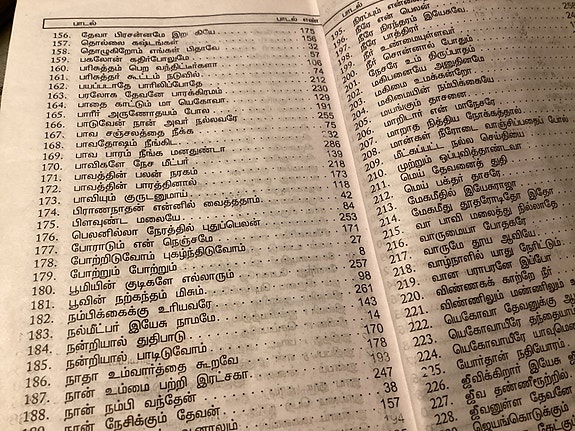 பாடல் பாடல் எண்
156. தேவா பிரசன்னமே இற கியே 175
157. தொல்லை கஷ்டங்கள் 156
158. தொழுகிறோம் எங்கள் பிதாவே 32
159. பகலோன் கதிர்போலும 57
160. பரிசுத்தம் பெற வந்திட்டீர்களா 106
161. பரிசுத்தர் கூட்டம் நடுவில் 74
162. பயப்படாதே பாரிலிப்போதே 212
163. பரலோக தேவனே பாரக்கிரமம் 230
164. பாதை காட்டும் மா யெகோவா 129
165. பாரீர் அருணோதயம் போல 191
166. பாடுவேன் நான் அவர் நல்லவரே 255
167. பாவ சஞ்சலத்தை நீக்க 75
168. பாவதோஷம் நீங்கிட 232
169. பாவ பாரம் நீங்க மனதுண்டா 286
170. பாவிகளே நேச மீட்பர் 139
171. பாவத்தின் பலன் நரகம் 218
172. பாவத்தின் பாரத்தினால் 173
173. பாவியும் குருடனுமாய் 118
174. பிராணநாதன் என்னில் வைத்ததாம் 42
175. பிளவுண்ட மலையே 84
176. பெலனில்லா நேரத்தில் புதுப்பெலன் 253
177. போராடும் என் நெஞ்சமே 171
178. போற்றிடுவோம் புகழ்ந்திடுவோம் 27
179. போற்றும் போற்றும் 8
180. பூமியின் குடிகளே எல்லாரும் 257
181. பூவின் நற்கந்தம் மிசும் 98
182. நம்பிக்கைக்கு உரியவரே 261
183. நல்மீட்பர் இயேசு நாமமே 143
184. நன்றியால் துதிபாடு 14
185. நன்றியால் பாடிடுவோம் 170
186. நாதா உம்வார்த்தை கூறவே 178
187. நான் உம்மை பற்றி இரட்சகா 193
188. நான் நம்பி வந்தேன் 247
நான் நேசிக்கும் தேவன் 38
157
பாடல்
195. நிரப்பும் என்னை
196. நீரே என் பெலன்
197. நீரே நிரந்தரம் இயேசுவே
198. நீரே பாத்திரர்
199. நீர் உண்மையுள்ளவர்
200. நீர் சொன்னால் போதும்
201. நேசரே உம் திருப்பாதம்
202. மகிபனையே அனுதினமே
203. மகிமை உமக்கன்றோ
204. மகிமையின் நம்பிக்கையே
205. மயங்கும் தாசனை
206. மாறிடார் எம் மாநேசரே
207. மாறாத நித்திய நேரக்கத்தால்
208. மான்கள் நீரோடை வாஞ்சிப்பதைப் போல்
209. மீட்கப்பட்ட நல்ல செய்தியை
210. முற்றும் ஒப்புவித்தாண்டவா
211. மெய் தேவனைத் துதி
212. மெய் பக்தா தாசரே
213. மேகமீதில் இயேசுராஜா
214. மேகமீது தூதரோடிதோ இதோ
215. வா பாவி மலைத்து நில்லாதே
216. வாருமையா போதகரே
217. வாருமே தூய ஆவியே
218. வாழ்நாளில் யாது நேரிட்டும்
219. வான பராபரனே இப்போ
220. விண்ணகக் காற்றே நீர்
221. விண்ணிலும் மண்ணிலும்
222. யெகோவா தேவனுக்கு
223. யெகோவாயீரே தந்தையாம்
224. யெகோவாயீரே
225. யோர்தான் நதியோரம்
226. ஜீவிக்கிறார் இயேசு
227. ஜீவ தண்ணீரூற்றில்
228. ஜீவனுள்ள தேவனே
ஜெயங்கொடுக்கும்